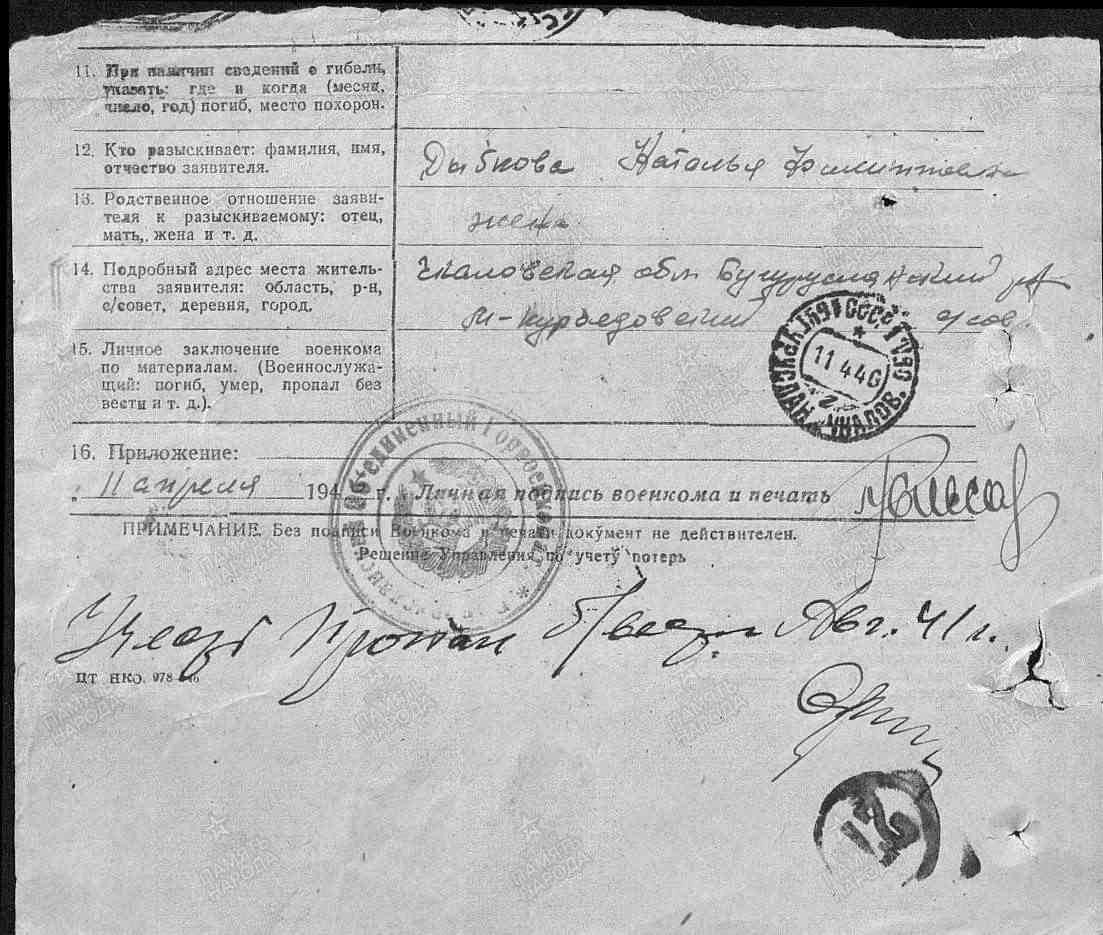 11. При наличии сведений о гибели,
указать: где и когда (месяц,
число, год) погиб, место похорон.
12. Кто разыскивает: фамилия, имя,
отчество заявителя.
Дыбкова Наталья Филипповна
13. Родственное отношение заяви-
теля к разыскиваемому: отец,
мать, жена и т. д.
жена
14. Подробный адрес места житель-
ства заявителя: область, р-н,
с/совет, деревня, город.
Чкаловская обл Бугурусланский
с/сов.
15. Личное заключение военкома
по материалам. (Военнослужа-
щий: погиб, умер, пропал без
вести и т. д.).
БУГУРУСЛАН ЧКАЛОВ. ОБЛ.
СССР
11 4 46
16. Приложение:
„ 11 апреля 194 г. Личная подпись военкома и печать
Объединенный Горвоенкомат
ПРИМЕЧАНИЕ. Без подписи Военкома и печати документ не действителен.
Решение Управления по учету потерь
Пропал б/вести Авг. 41 г.
ЦТ НКО. 978
ПАМЯТЬ НАРОДА